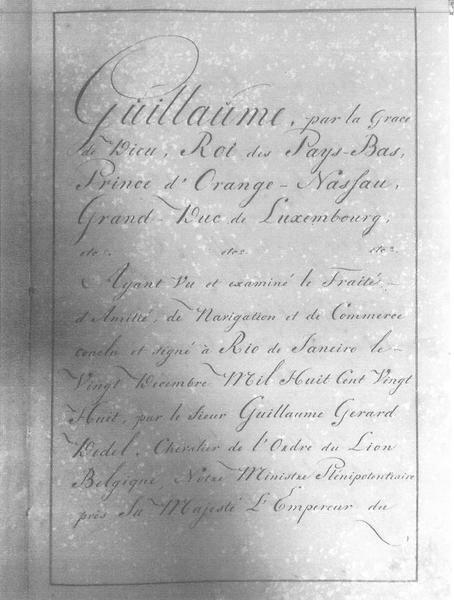 Guillaume, par la Grace
de Dieu, Roi des Pays-Bas,
Prince d'Orange-Nassau,
Grand-Duc de Luxembourg,
etc. etc. etc.
Ayant Vu et examiné le Traité
d'Amitié, de Navigation et de Commerce
conclu et signé à Rio de Janeiro le
Vingt Decembre Mil Huit Cent Vingt
Huit, par le Sieur Guillaume Gerard
Dedel, Chevalier de l'Ordre du Lion
Belgique, Notre Ministre Plénipotentiaire
près Sa Majesté L'Empereur du